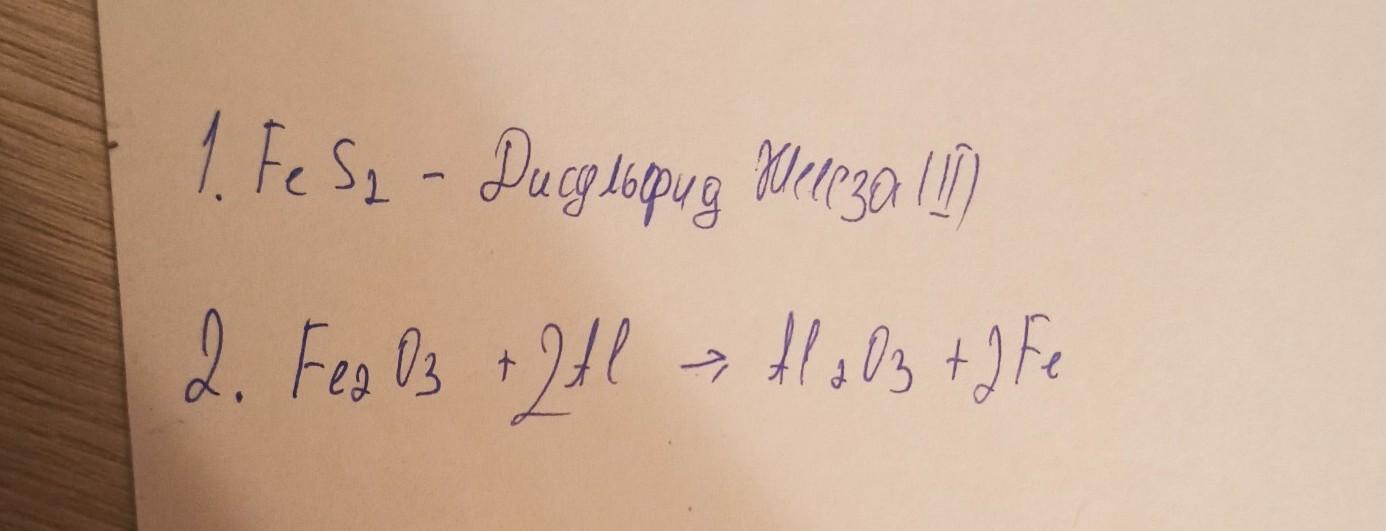 1. FeS2 - Дисульфид Железа (II)
2. Fe2O3 + 2Al → Al2O3 + 2Fe